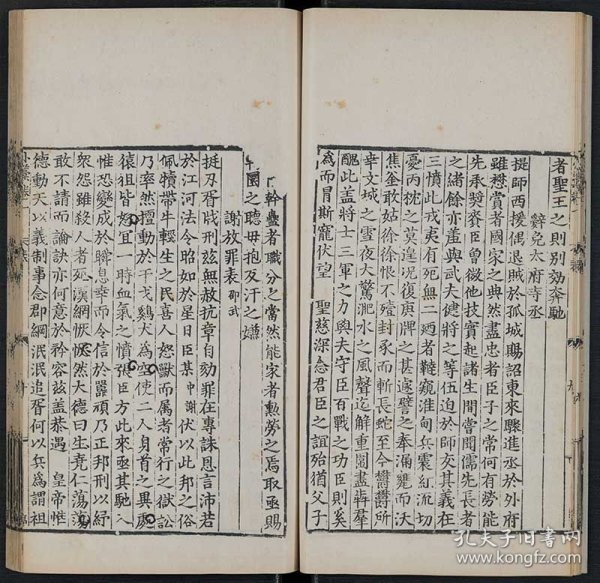 者聖王之則別効奔馳
辭免太府寺丞
提師西援偶退賊於孤城賜詔東來驟進丞於外府
雖懋賞者國家之典然盡忠者臣子之常何有勞能
先承獎麥臣曾微他技實起諸生間嘗聞儒先長者
之緒餘亦羞與武夫健將之等伍迫於師友其義在
三憤此戎夷有死無二迺者韃窺淮甸兵震紅流切
憂丙枕之莫遑況復庚牌之甚遽譬之奉漏甕而沃
焦釜敢姑徐徐恨不殪封豕而斬長蛇至今欝欝所
幸文城之雪夜大驚淝水之風聲迄解重圍盡犇羣
醜此盖將士三軍之力與夫守臣百戰之功臣則奚
為而冒斯寵伏望 聖慈深念君臣之誼殆猶父子
幹蠱者職分之當然能家者勲勞之焉取亟賜
國之聴毋抱反汗之嫌
謝放罪表 邵武
挺刃胥戕刑玆無赦抗章自劾罪在專誅恩言沛若
於江河法令昭如於星日臣某中謝伏以此邦之俗
佩犢帶牛輕生之民喜人怒獸而属者常行之獄訟
乃率然擅動於干戈鷄犬為空使二人身首之異處
猿狙皆好冝一時血氣之憤張臣方此來亟其馳入
惟恐變成於瞬息幸而令信於嚚頑乃正邦刑以紓
衆怨雖殺人者死漢網恢恢然大德曰生堯仁蕩蕩
敢不請而論訣亦何意於矜容玆盖恭遇 皇帝惟
德動天以義制事念郡綱泯泯追胥何以兵為謂祖
孔夫子旧书网
www.kongfz.com